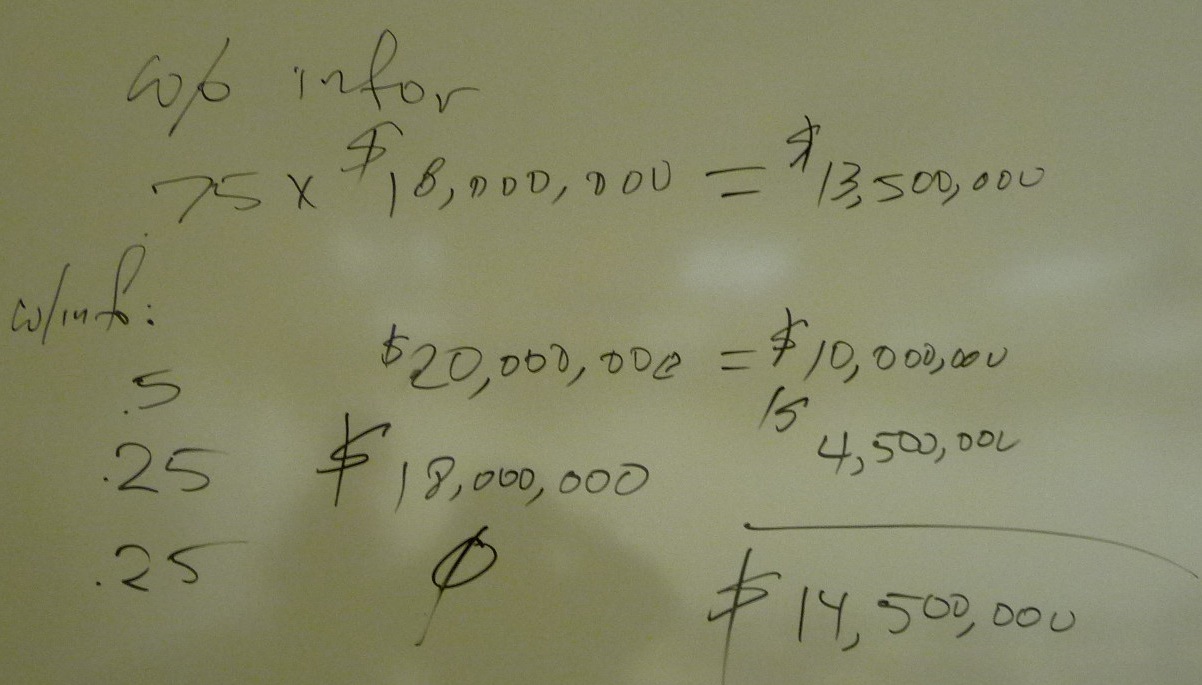 w/o infor
.75 x $18,000,000 = $13,500,000
w/inf:
.5 $20,000,000 = $10,000,000
.25 $18,000,000 4,500,000
.25 0
$14,500,000